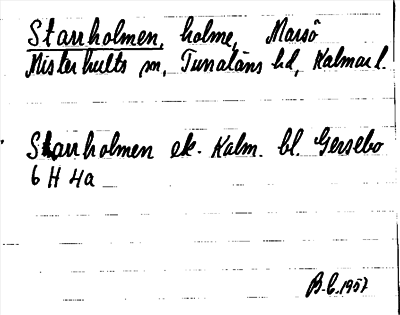 Starrholmen, holme, Marsö
Misterhults sn, Tunaläns hd, Kalmar l.
Starrholmen ek. Kalm. bl. Gersebo
6 H 4a
B.C. 1957